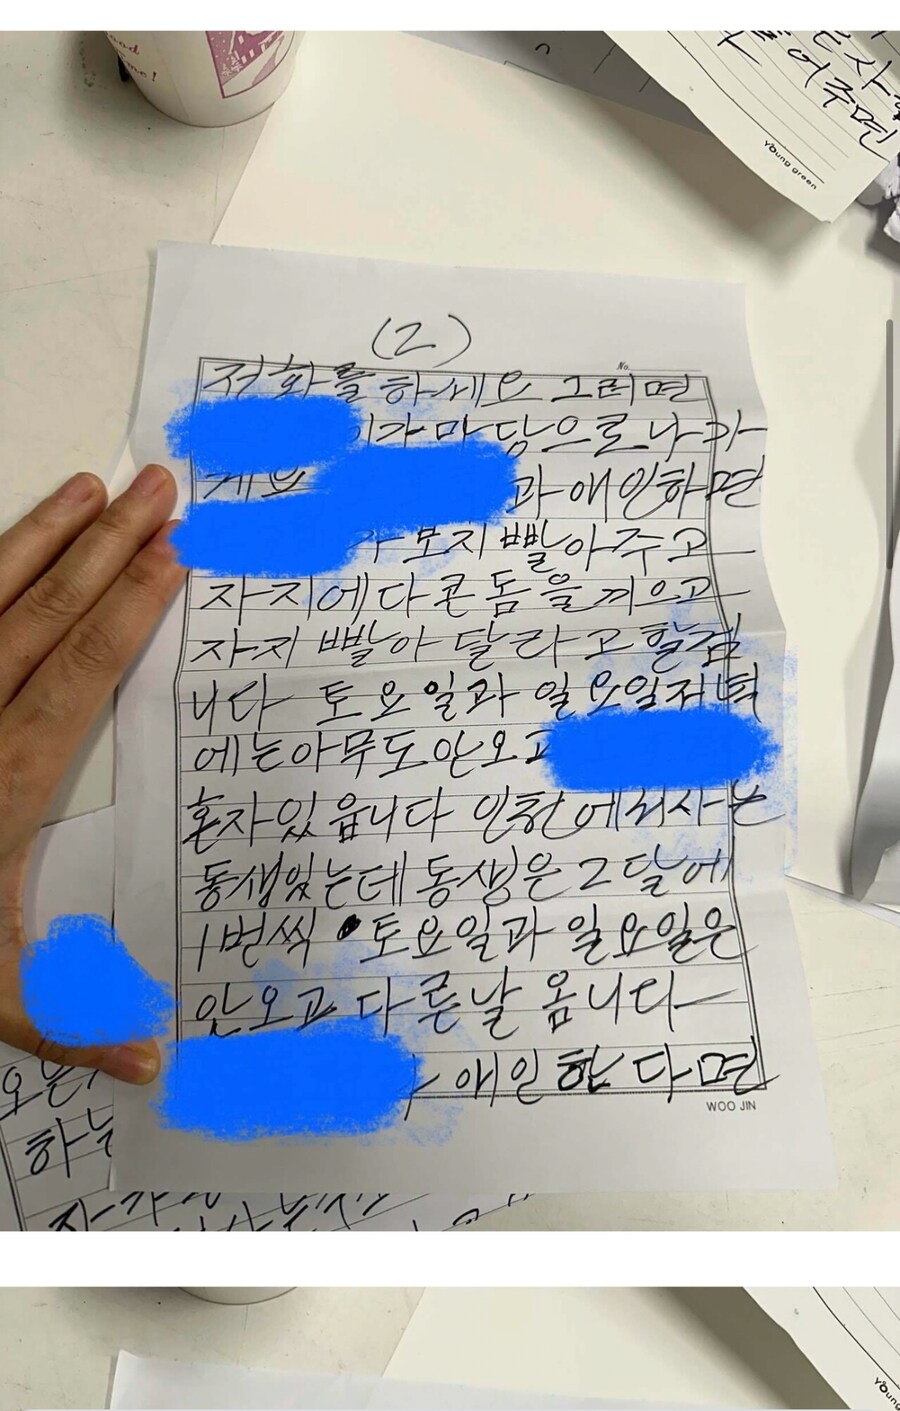 ood
me!
사
어주면
Young green
(2)
No.
저화를하세요 그러면
이가 마당으로 나가
게보 과 애인하면
가 보지 빨아 주고
자지에다 콘돔을 끼으고
자지 빨아 달라고 할겁
니다 토요일과 일요일저녁
에는아무도안오고
혼자있읍니다 인천에서사는
동생있는데 동생은 2달에
1번씩 토요일과 일요일은
안오고 다른날 옵니다
애인한다면
WOO JIN
하는
Young